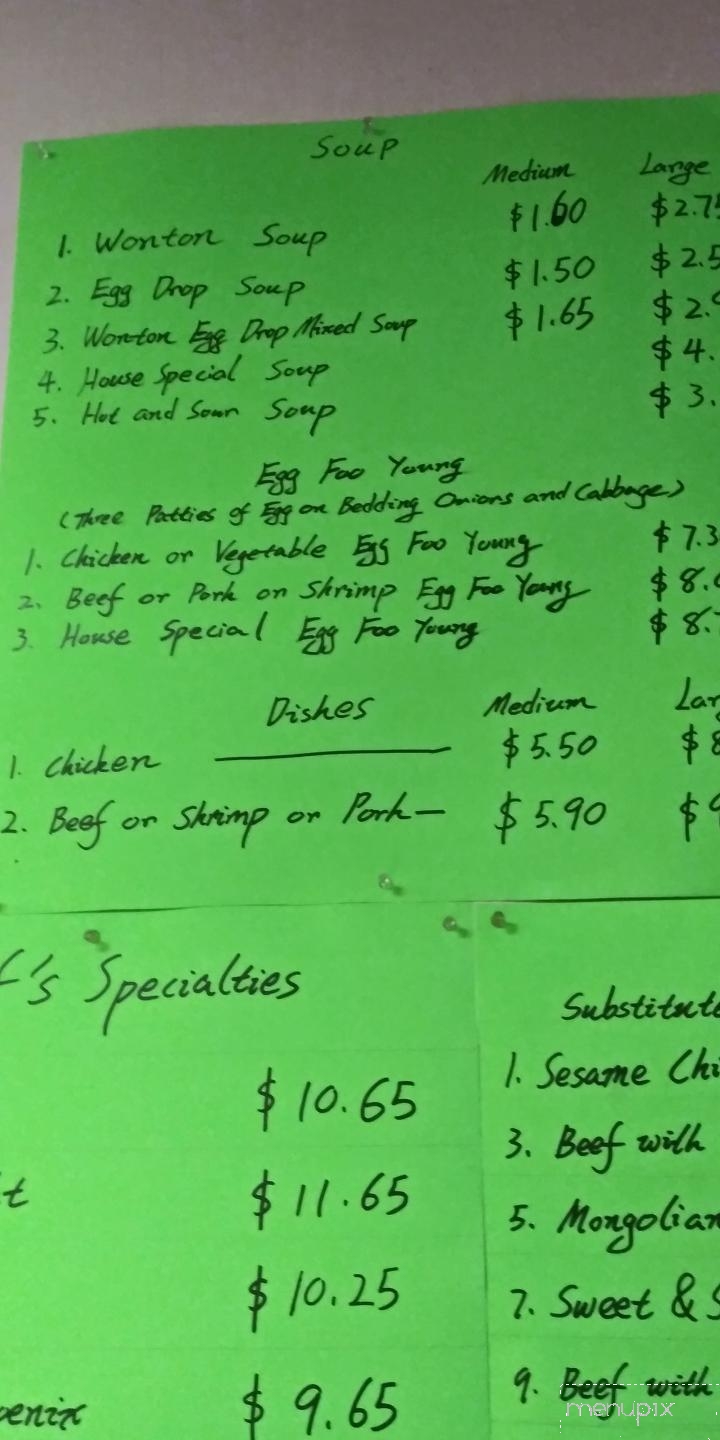 Soup
Medium Large
1. Wonton Soup $1.60 $2.7
2. Egg Drop Soup $1.50 $2.5
3. Wonton Egg Drop Mixed Soup $1.65 $2.
4. House Special Soup $4.
5. Hot and Sour Soup $3.
Egg Foo Young
(Three Patties of Egg on Bedding Onions and Cabbage)
1. Chicken or Vegetable Egg Foo Young $7.3
2. Beef or Pork or Shrimp Egg Foo Young $8.
3. House Special Egg Foo Young $8.
Dishes Medium Lar
1. Chicken $5.50 $8
2. Beef or Shrimp or Pork— $5.90 $9
's Specialties
$10.65
t $11.65
$10.25
enix $9.65
Substitut
1. Sesame Chi
3. Beef with
5. Mongolian
7. Sweet & S
9. Beef with
menupix